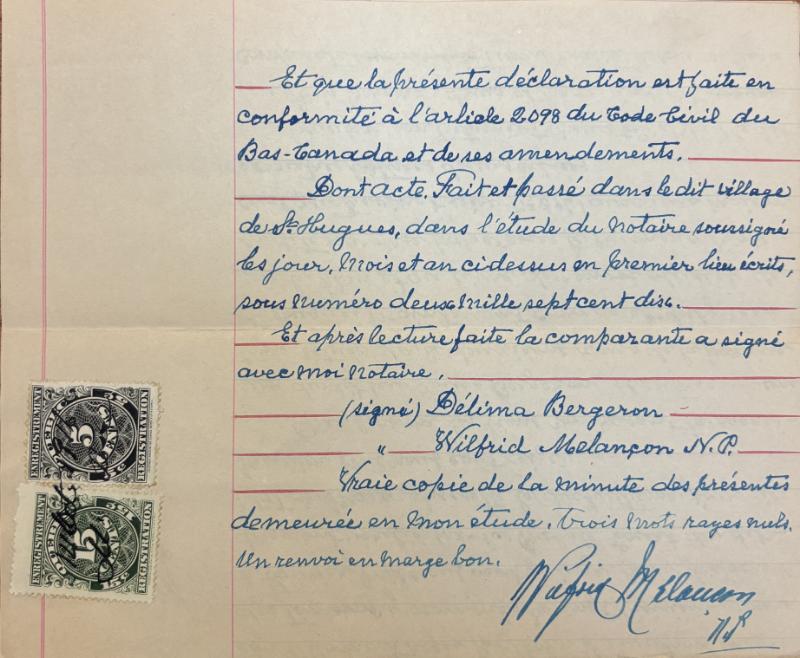 Et que la présente déclaration est faite en
conformité à l'article 2098 du Code Civil du
Bas-Canada et de ses amendements.
Dont acte. Fait et passé dans le dit village
de St. Hugues, dans l'étude du Notaire soussigné
les jour, mois et an ci dessus en premier lieu écrits,
sous numéro deux mille sept cent dix.
Et après lecture faite la comparante a signé
avec moi notaire.
(signé) Délima Bergeron
" Wilfrid Melançon N.P.
Vraie copie de la minute des présentes
demeurée en mon étude. Trois mots rayés nuls.
Un renvoi en marge bon.
Wilfrid Melancon
N.P.
ENREGISTREMENT
QUEBEC
5
REGISTRATION
ENREGISTREMENT
QUEBEC
15
REGISTRATION